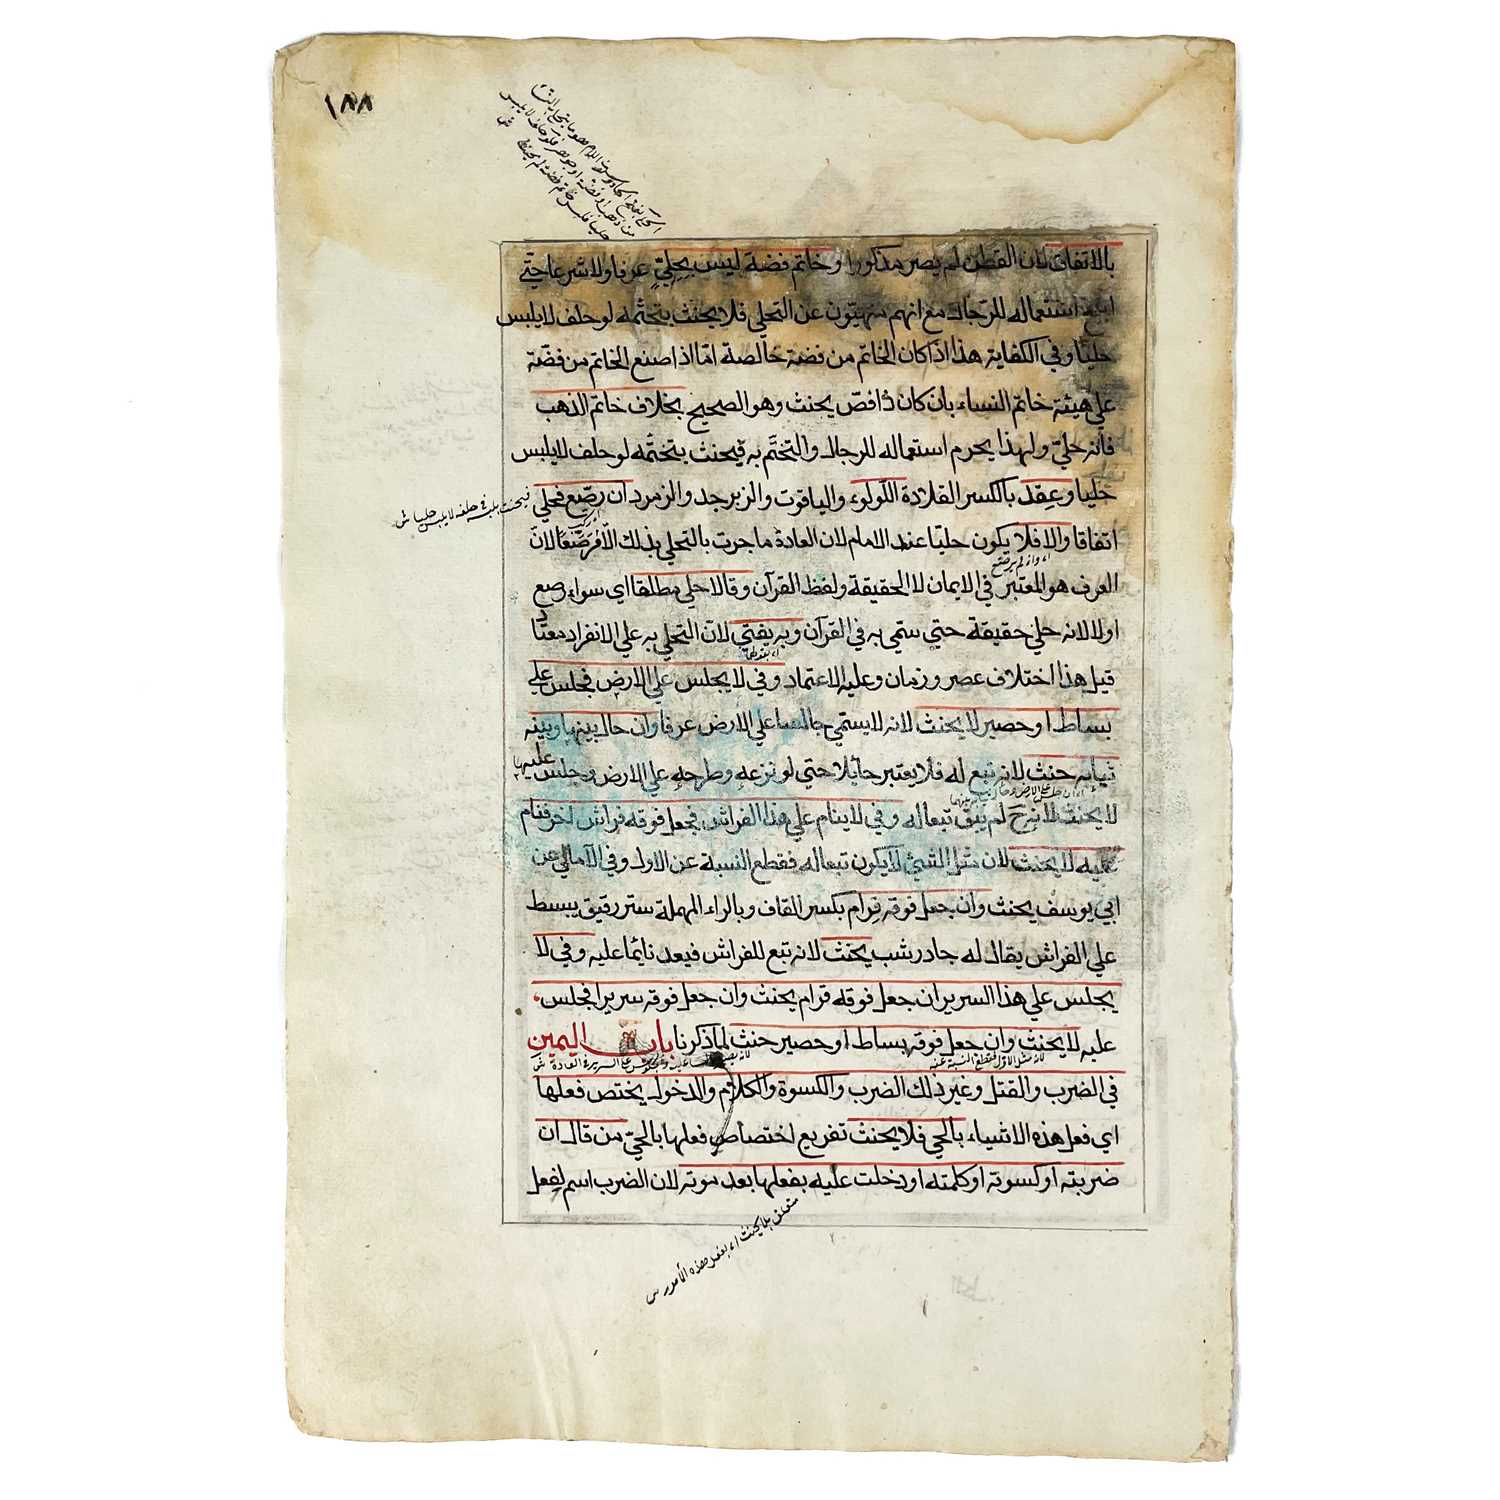 ١٨٨
بالاتفاق لان القطن لم يصر مذكورا وخاتم فضة ليس بحليّ عرفا ولا شرعا حتّي
ابيح استعماله للرّجال مع انهم منهيّون عن التحلي فلا يحنث بتختّمه لو حلف لا يلبس
حليّا وفي الكفاية هذا اذا كان الخاتم من فضة خالصة امّا اذا صنع الخاتم من فضّة
علي هيئة خاتم النساء بان كان ذا فصّ يحنث وهو الصحيح بخلاف خاتم الذهب
فانّه حليّ ولهذا يحرم استعماله للرجال والتختّم به فيحنث بتختّمه لو حلف لا يلبس
حليا وعِقد بالكسر القلادة اللّولوء والياقوت والزبرجد والزمرد ان رصّع فحلي
فيحنث بلبسه في حلفه لا يلبس حليا ش
اتفاقا والا فلا يكون حليّا عند الامام لان العادة ما جرت بالتحلي بذلك الّا مرصّعا لانّ
اي وان لم يرصّع
العرف هو المعتبر في الايمان لا الحقيقة ولفظ القرآن وقالا حلي مطلقا اي سواء رصع
اولا لانه حلي حقيقة حتي سمّي به في القرآن وبه يفتي لانّ التحلي به علي الانفراد معتاد
اي بقولهما
قيل هذا اختلاف عصر وزمان وعليه الاعتماد وفي لا يجلس علي الارض فجلس علي
بساط او حصير لا يحنث لانه لا يسمّي جالسا علي الارض عرفا وان حال بينها وبينه
ثيابه حنث لانه تبع له فلا يعتبر حائلا حتي لو نزعه وطرحه علي الارض وجلس عليها
لا يحنث لانه ح لم يبق تبعا له وفي لا ينام علي هذا الفراش فجعل فوقه فراش اخر فنام
عليه لا يحنث لان مثل الشيئ لا يكون تبعا له فقطع النسبة عن الاول وفي الآمالي عن
ابي يوسف يحنث وان جعل فوقه قِرام بكسر القاف وبالراء المهملة ستر رقيق يبسط
علي الفراش يقال له جادرشب يحنث لانه تبع للفراش فيعد نائما عليه وفي لا
يجلس علي هذا السرير ان جعل فوقه قرام يحنث وان جعل فوقه سريرا فجلس
عليه لا يحنث وان جعل فوقه بساط او حصير حنث لما ذكرنا باب اليمين
لانه مثل الاول فقطع النسبة عنه
في الضرب والقتل وغير ذلك الضرب والكسوة والكلام والدخول يختص فعلها
اي فعل هذه الاشياء بالحي فلا يحنث تفريع اختصاص فعلها بالحيّ من قال ان
ضربته او كسوته او كلمته او دخلت عليه بفعلها بعد موته لان الضرب اسم لفعل
متعلق بلا يحنث اي بفعل هذه الامور ش